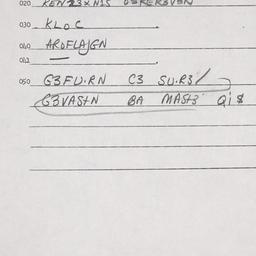 020
030 KLOC
040 ARDFLAJGN
041
050 G3FU.RN C3 SU.R3/
G3VASTN BA MAST3 Qi $